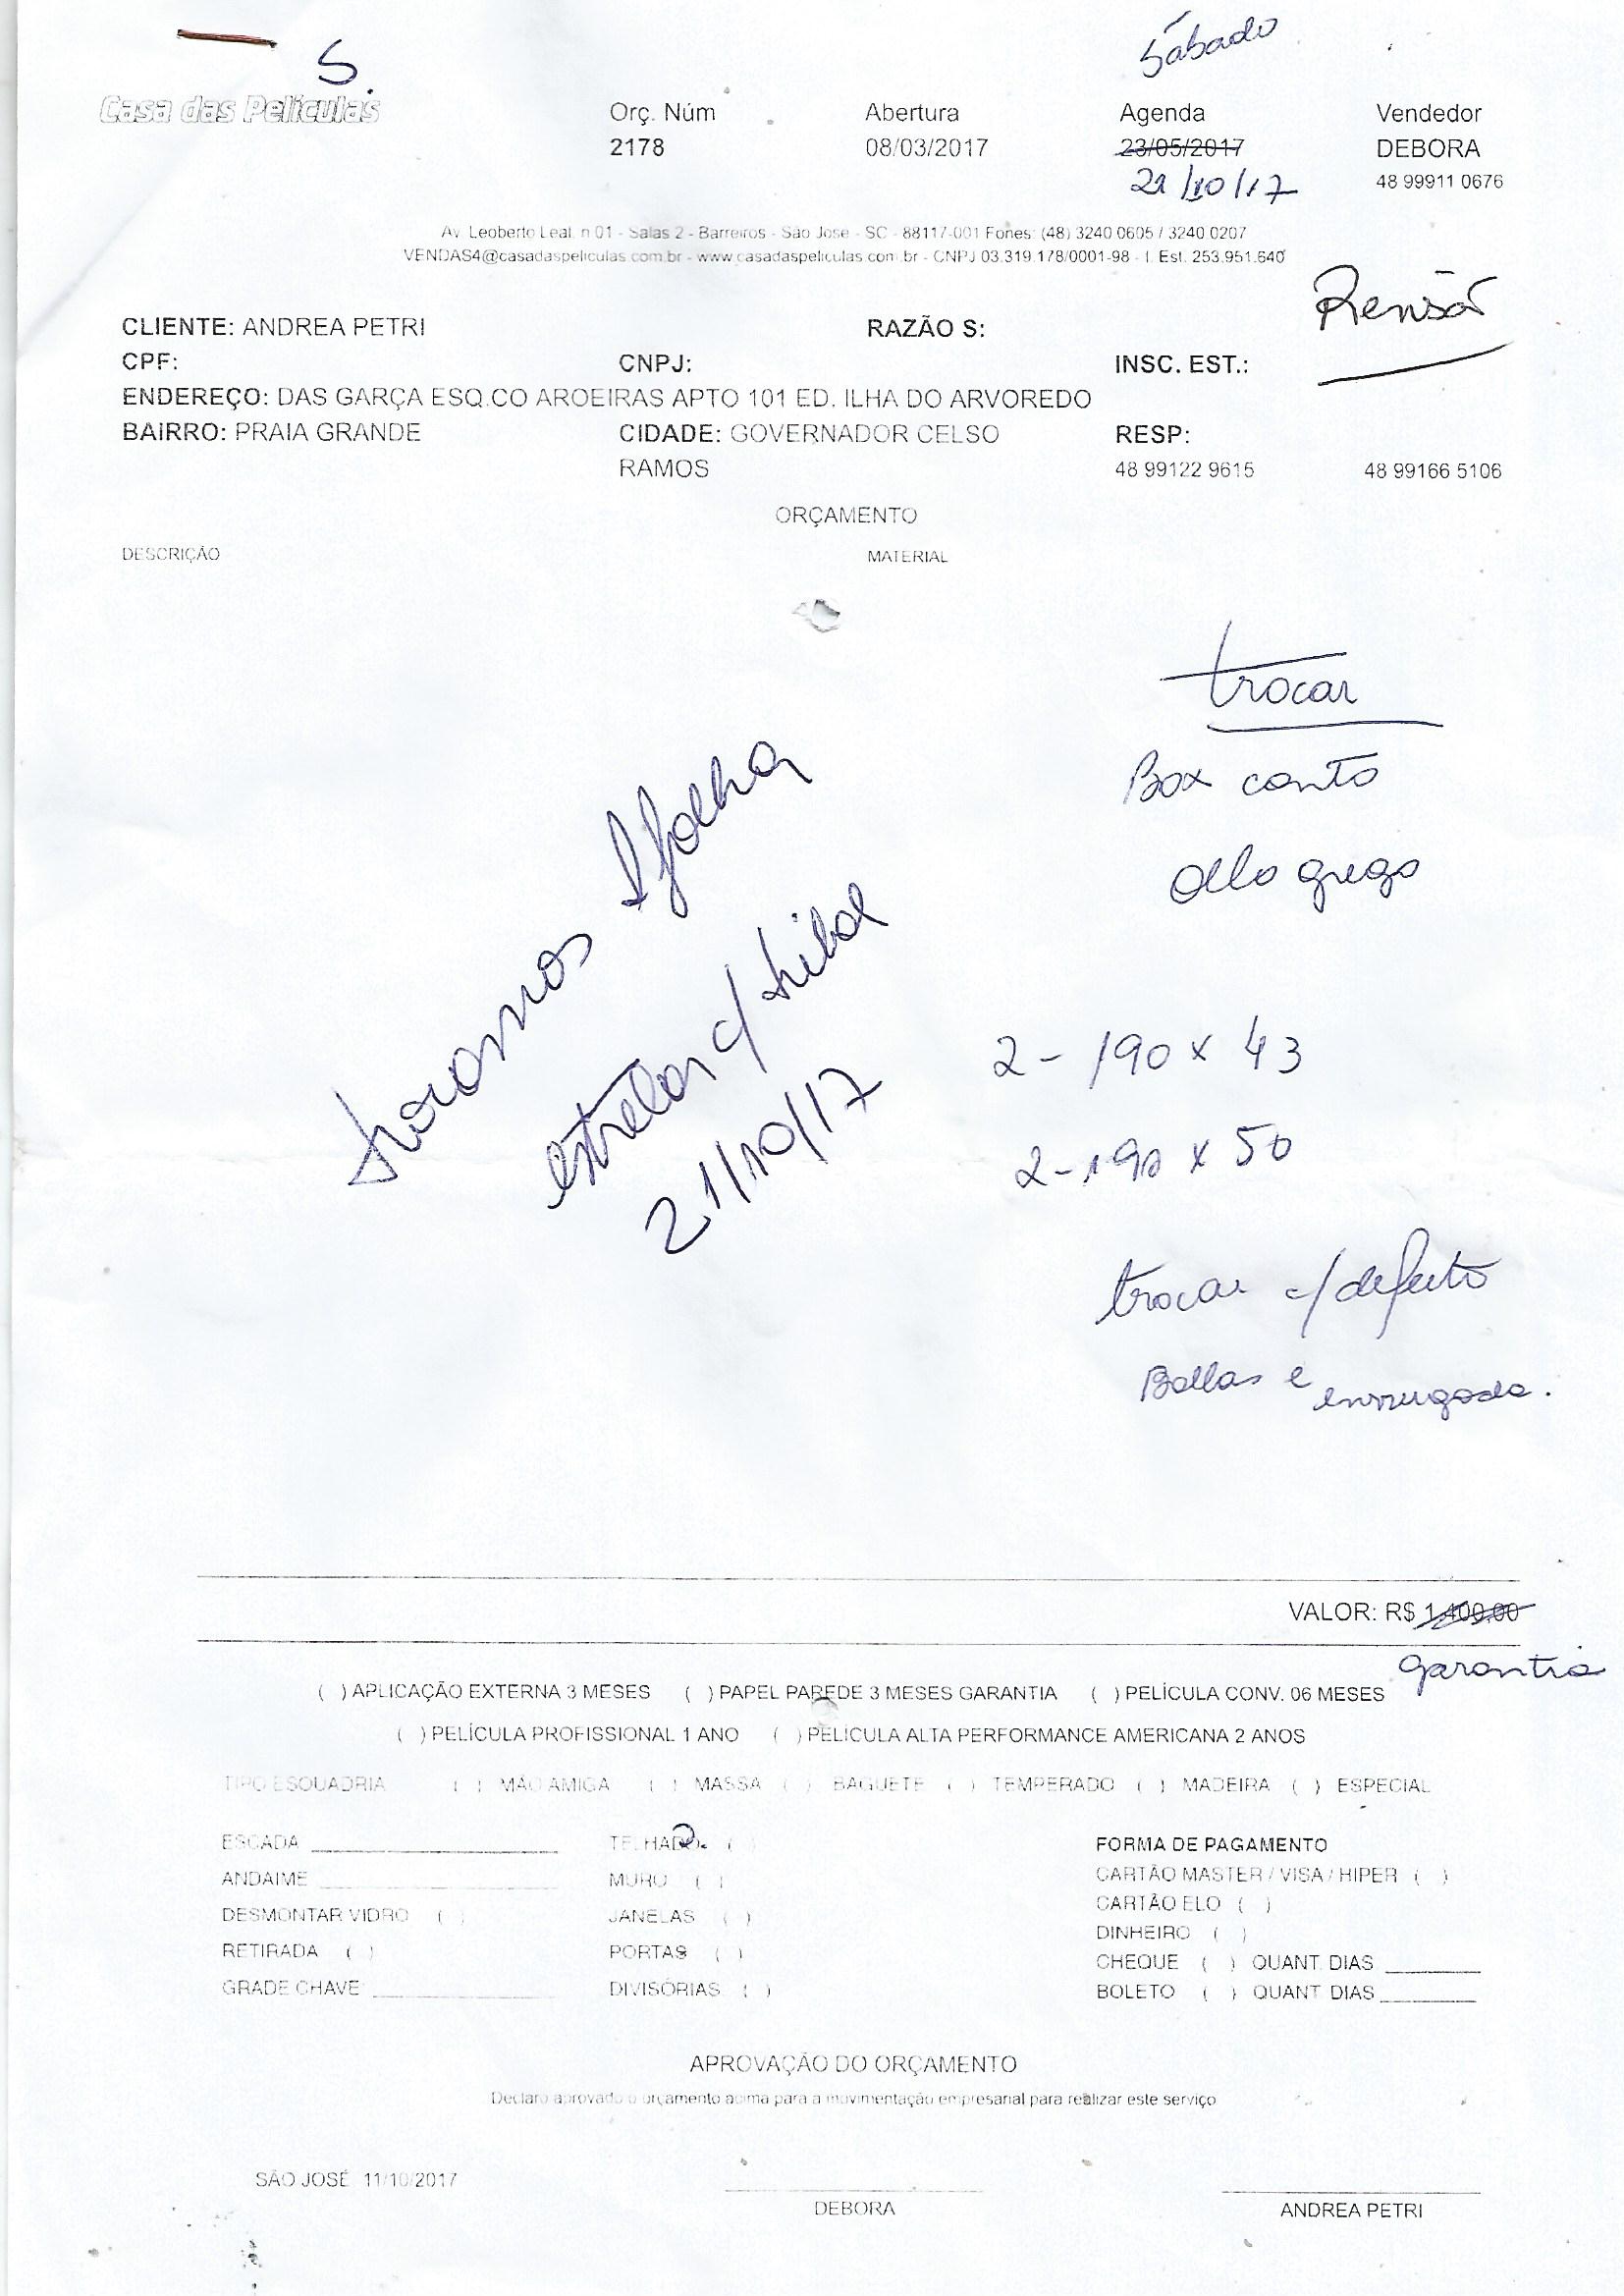 Sábado
S.
Casa das Películas
Orç. Núm Abertura Agenda Vendedor
2178 08/03/2017 23/05/2017 DEBORA
21/10/17 48 99911 0676
Av. Leoberto Leal, n 01 - Salas 2 - Barreiros - São José - SC - 88117-001 Fones: (48) 3240 0605 / 3240 0207
VENDAS4@casadaspeliculas.com.br - www.casadaspeliculas.com.br - CNPJ 03.319.178/0001-98 - I. Est. 253.951.640
CLIENTE: ANDREA PETRI RAZÃO S:
CPF: CNPJ: INSC. EST.:
ENDEREÇO: DAS GARÇA ESQ.CO AROEIRAS APTO 101 ED. ILHA DO ARVOREDO
BAIRRO: PRAIA GRANDE CIDADE: GOVERNADOR CELSO RESP:
RAMOS 48 99122 9615 48 99166 5106
ORÇAMENTO
DESCRIÇÃO MATERIAL
trocar
Box canto
grego
folha
c/
21/10/17
2 - 190 x 43
2 - 190 x 50
trocar c/ defeito
Bollas e enrrugada.
VALOR: R$ 1.400,00
garantia
( ) APLICAÇÃO EXTERNA 3 MESES ( ) PAPEL PAREDE 3 MESES GARANTIA ( ) PELÍCULA CONV. 06 MESES
( ) PELÍCULA PROFISSIONAL 1 ANO ( ) PELÍCULA ALTA PERFORMANCE AMERICANA 2 ANOS
TIPO ESQUADRIA ( ) MÃO AMIGA ( ) MASSA ( ) BAGUETE ( ) TEMPERADO ( ) MADEIRA ( ) ESPECIAL
ESCADA TELHADO ( ) FORMA DE PAGAMENTO
ANDAIME MURO ( ) CARTÃO MASTER / VISA / HIPER ( )
DESMONTAR VIDRO ( ) JANELAS ( ) CARTÃO ELO ( )
RETIRADA ( ) PORTAS ( ) DINHEIRO ( )
GRADE CHAVE DIVISÓRIAS ( ) CHEQUE ( ) QUANT. DIAS
BOLETO ( ) QUANT. DIAS
APROVAÇÃO DO ORÇAMENTO
Declaro aprovado o orçamento acima para a movimentação empresarial para realizar este serviço
SÃO JOSÉ 11/10/2017
DEBORA ANDREA PETRI